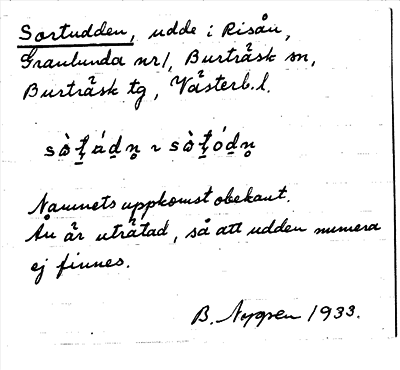 Sortudden, udde i Risån,
Granlunda nr 1, Burträsk sn,
Burträsk tg, Västerb. l.
sò̀ṭáḍṇ ~ sò̀ṭóḍṇ
Namnets uppkomst obekant.
Ån är uträtad, så att udden numera
ej finnes.
B. Nygren 1933.